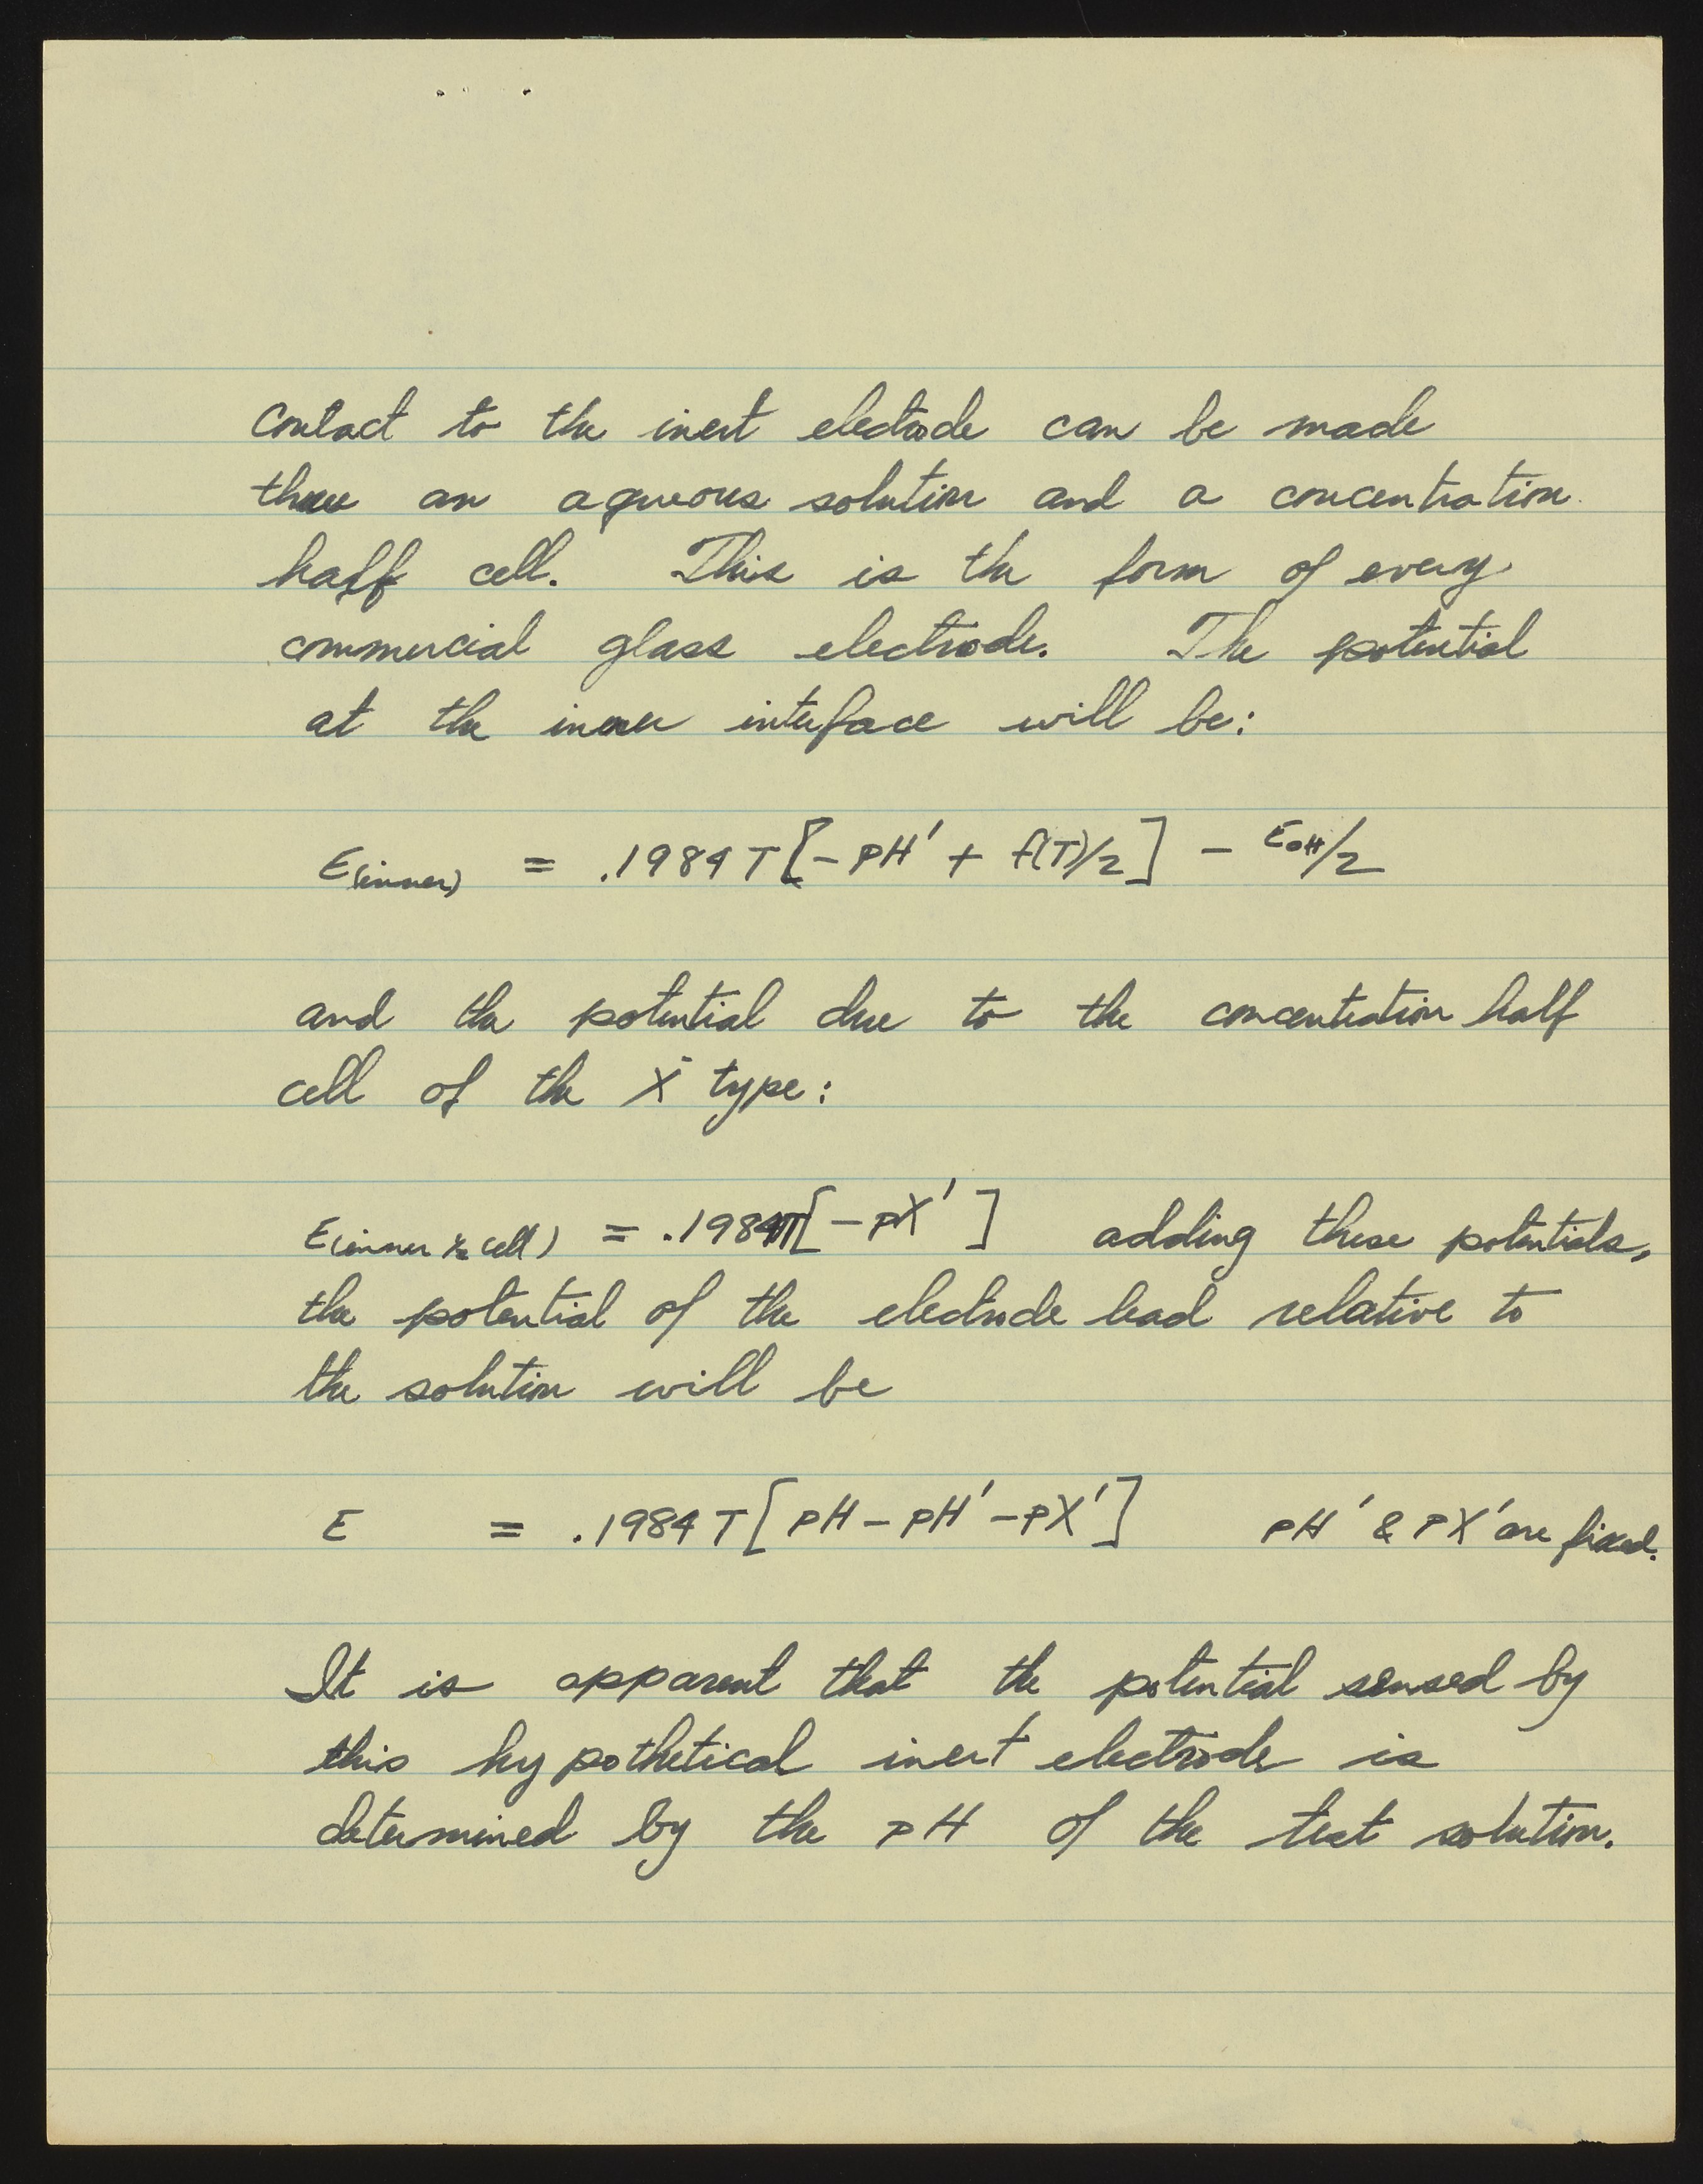 Contact to the inert electrode can be made
thru an aqueous solution and a concentration
half cell. This is the form of every
commercial glass electrode. The potential
at the inner interface will be:
E(inner) = .1984 T[-PH' + f(T)/2] - EOH/2
and the potential due to the concentration half
cell of the X⁻ type:
E(inner ½ cell) = .1984T[-PX'] adding these potentials,
the potential of the electrode lead relative to
the solution will be
E = .1984 T[PH-PH'-PX'] PH' & PX' are fixed.
It is apparent that the potential sensed by
this hypothetical inert electrode is
determined by the PH of the test solution.